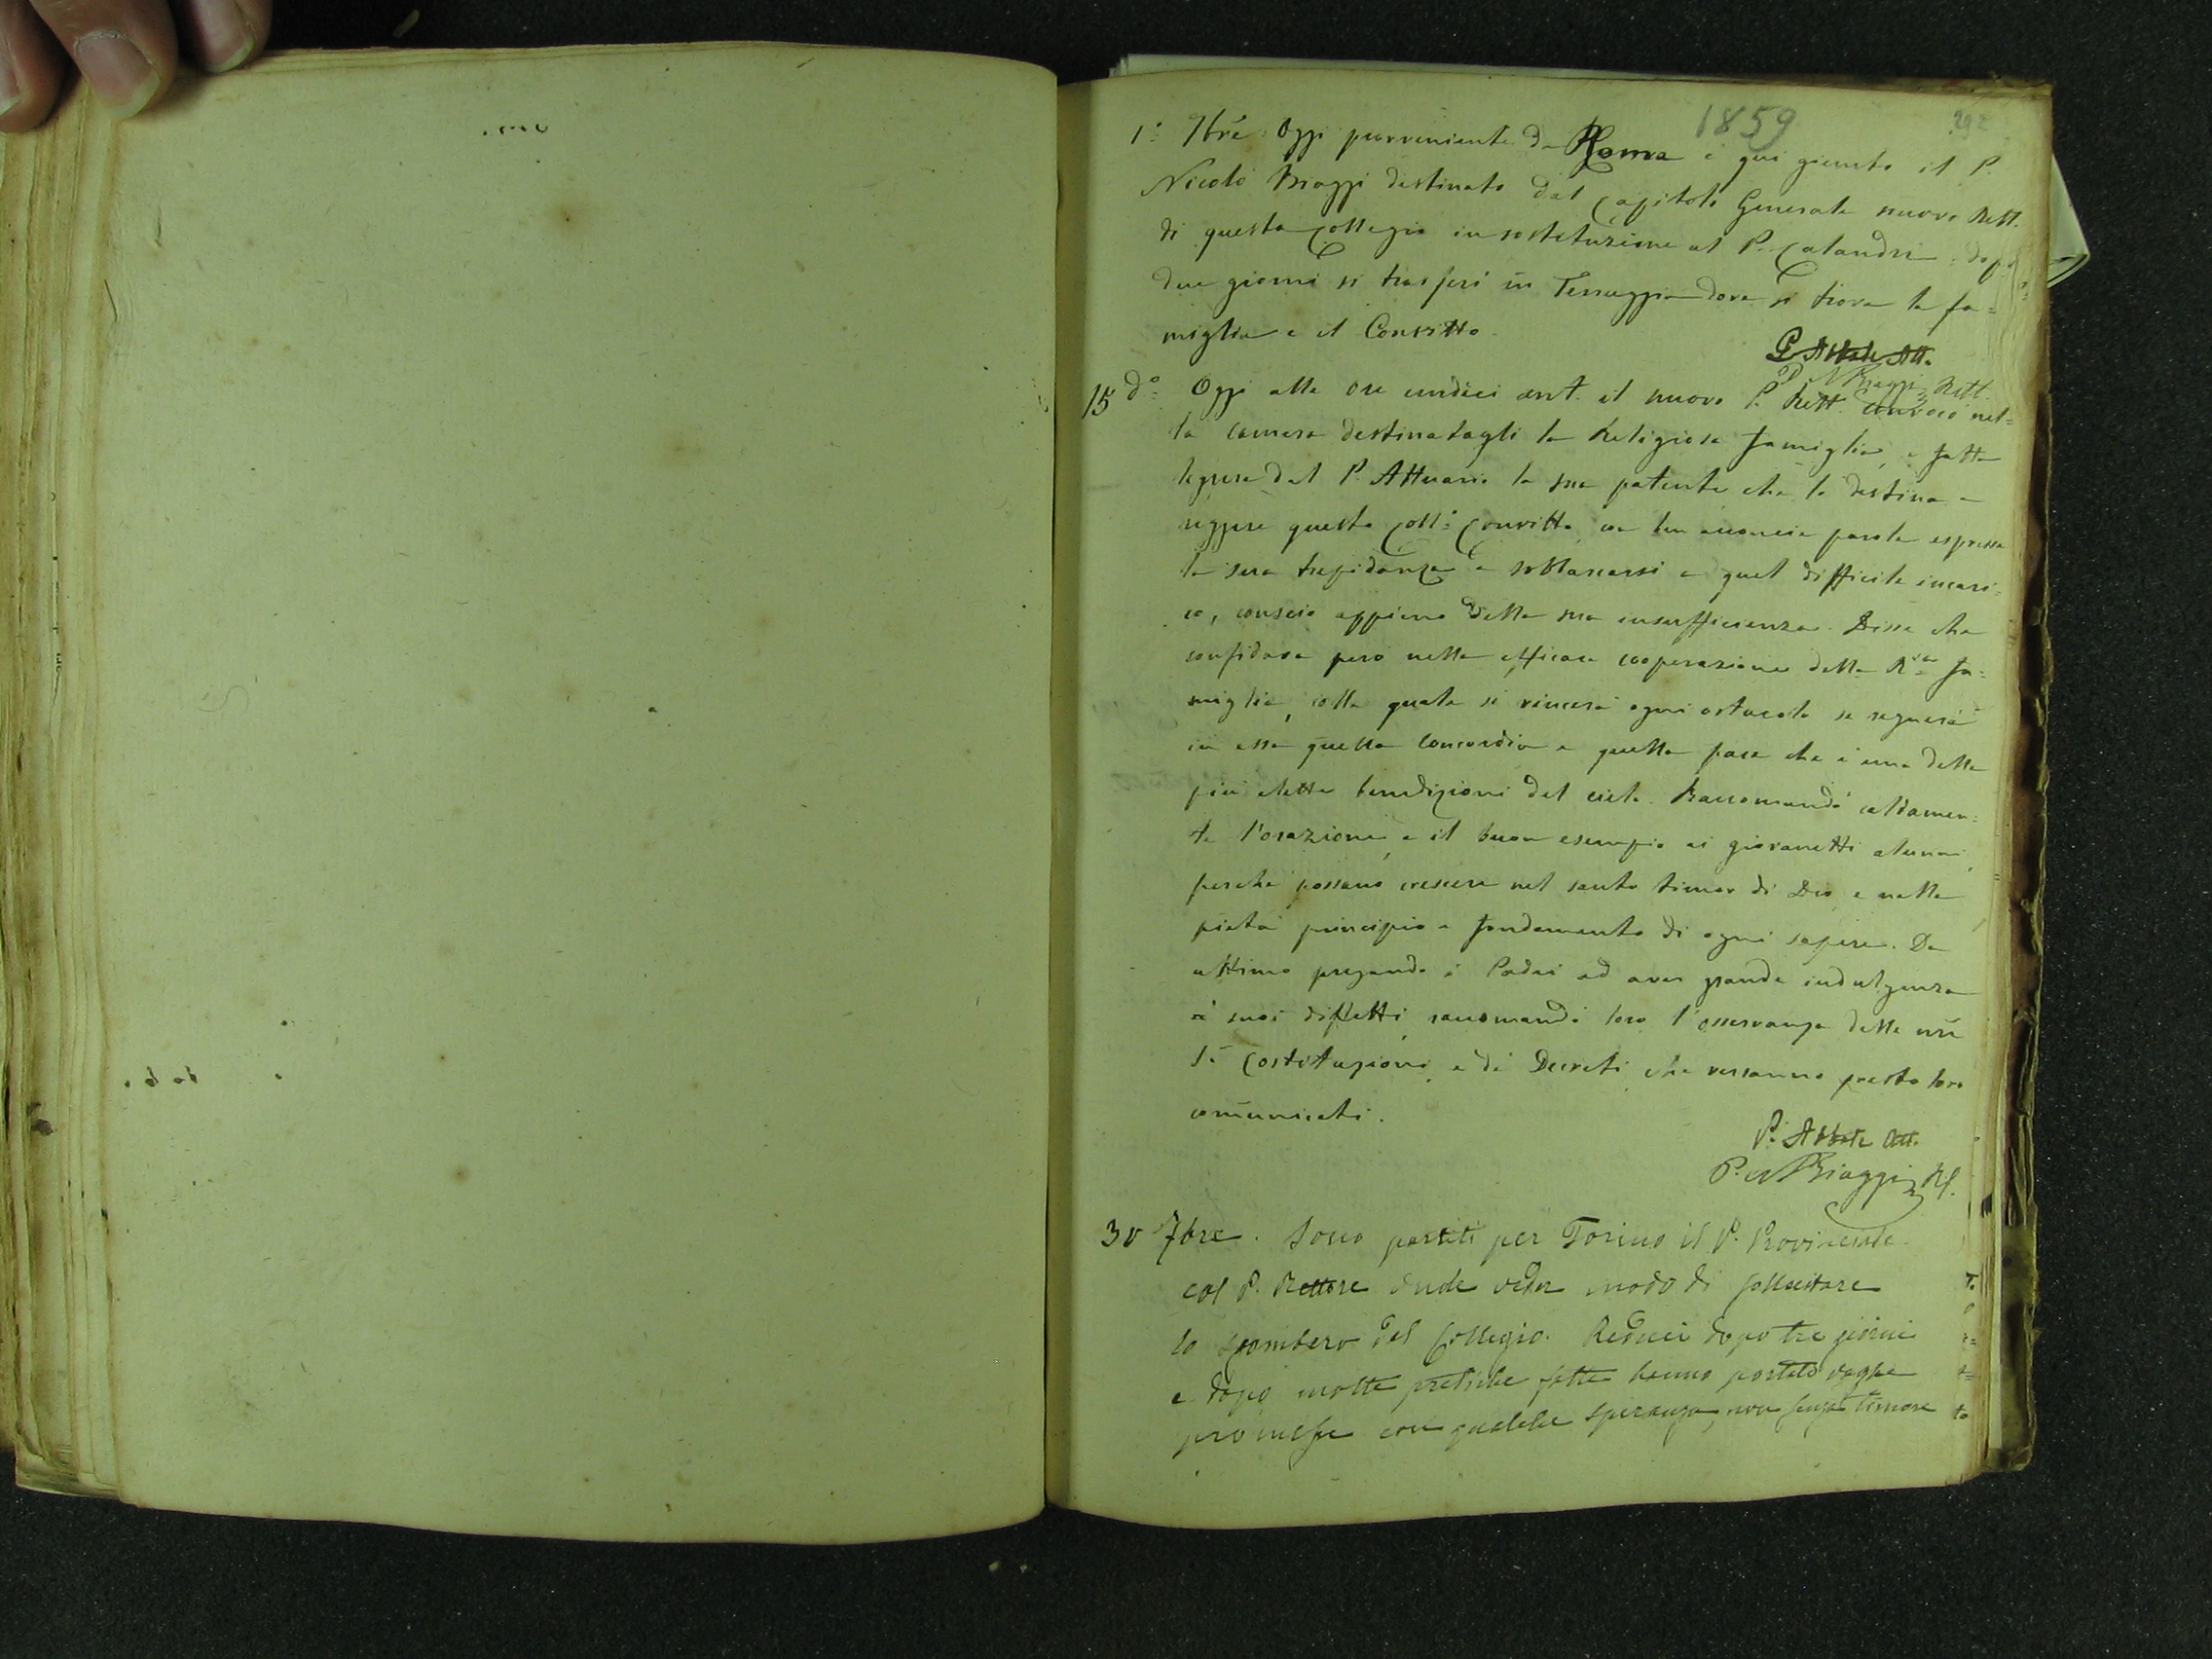 1859
292
1°: 7bre Oggi provveniente da Roma è qui giunto il P.
Nicolò Biaggi destinato dal Capitolo Generale nuovo Rett.
di questo Collegio in sostituzione al P. Calandri: dopo
due giorni si trasferì in Teruggia dove si trova la fa=
miglia e il Convitto.
P. Abbate Att.
P. N Biaggi Rett.
15 d°: Oggi alle ore undici ant. il nuovo P. Rett. convocò nel=
la camera destinatagli la Religiosa famiglia, e fatta
leggere dal P. Attuario la sua patente che lo destina a
reggere questo Coll°: Convitto, con ben acconcie parole espresse
la sua trepidanza a sobbarcarsi a quel difficile incari=
co, conscio appieno della sua insufficienza. Disse che
confidava però nella efficace cooperazione della R.sa fa=
miglia, colla quale si vincerà ogni ostacolo se regnerà
in essa quella concordia e quella pace che è una delle
più elette benedizioni del cielo. Raccomandò caldamen=
te l'orazione, e il buon esempio ai giovanetti alunni,
perchè possano crescere nel santo timor di Dio e nella
pietà principio e fondamento di ogni sapere. Da
ultimo pregando i Padri ad aver grande indulgenza
a' suoi diffetti, raccomandò loro l'osservanza delle nrē
Sē Costituzioni, e di Decreti, che verranno presto loro
comunicati.
P. Abbate Att.
P. N Biaggi Rt.
30 7bre. Sono partiti per Torino il P. Provinciale
col P. Rettore onde veder modo di sollecitare
lo sgombero del Collegio. Reduci dopo tre giorni
e dopo molte pratiche fatte hanno portato vaghe
promesse con qualche speranza, non senza timore